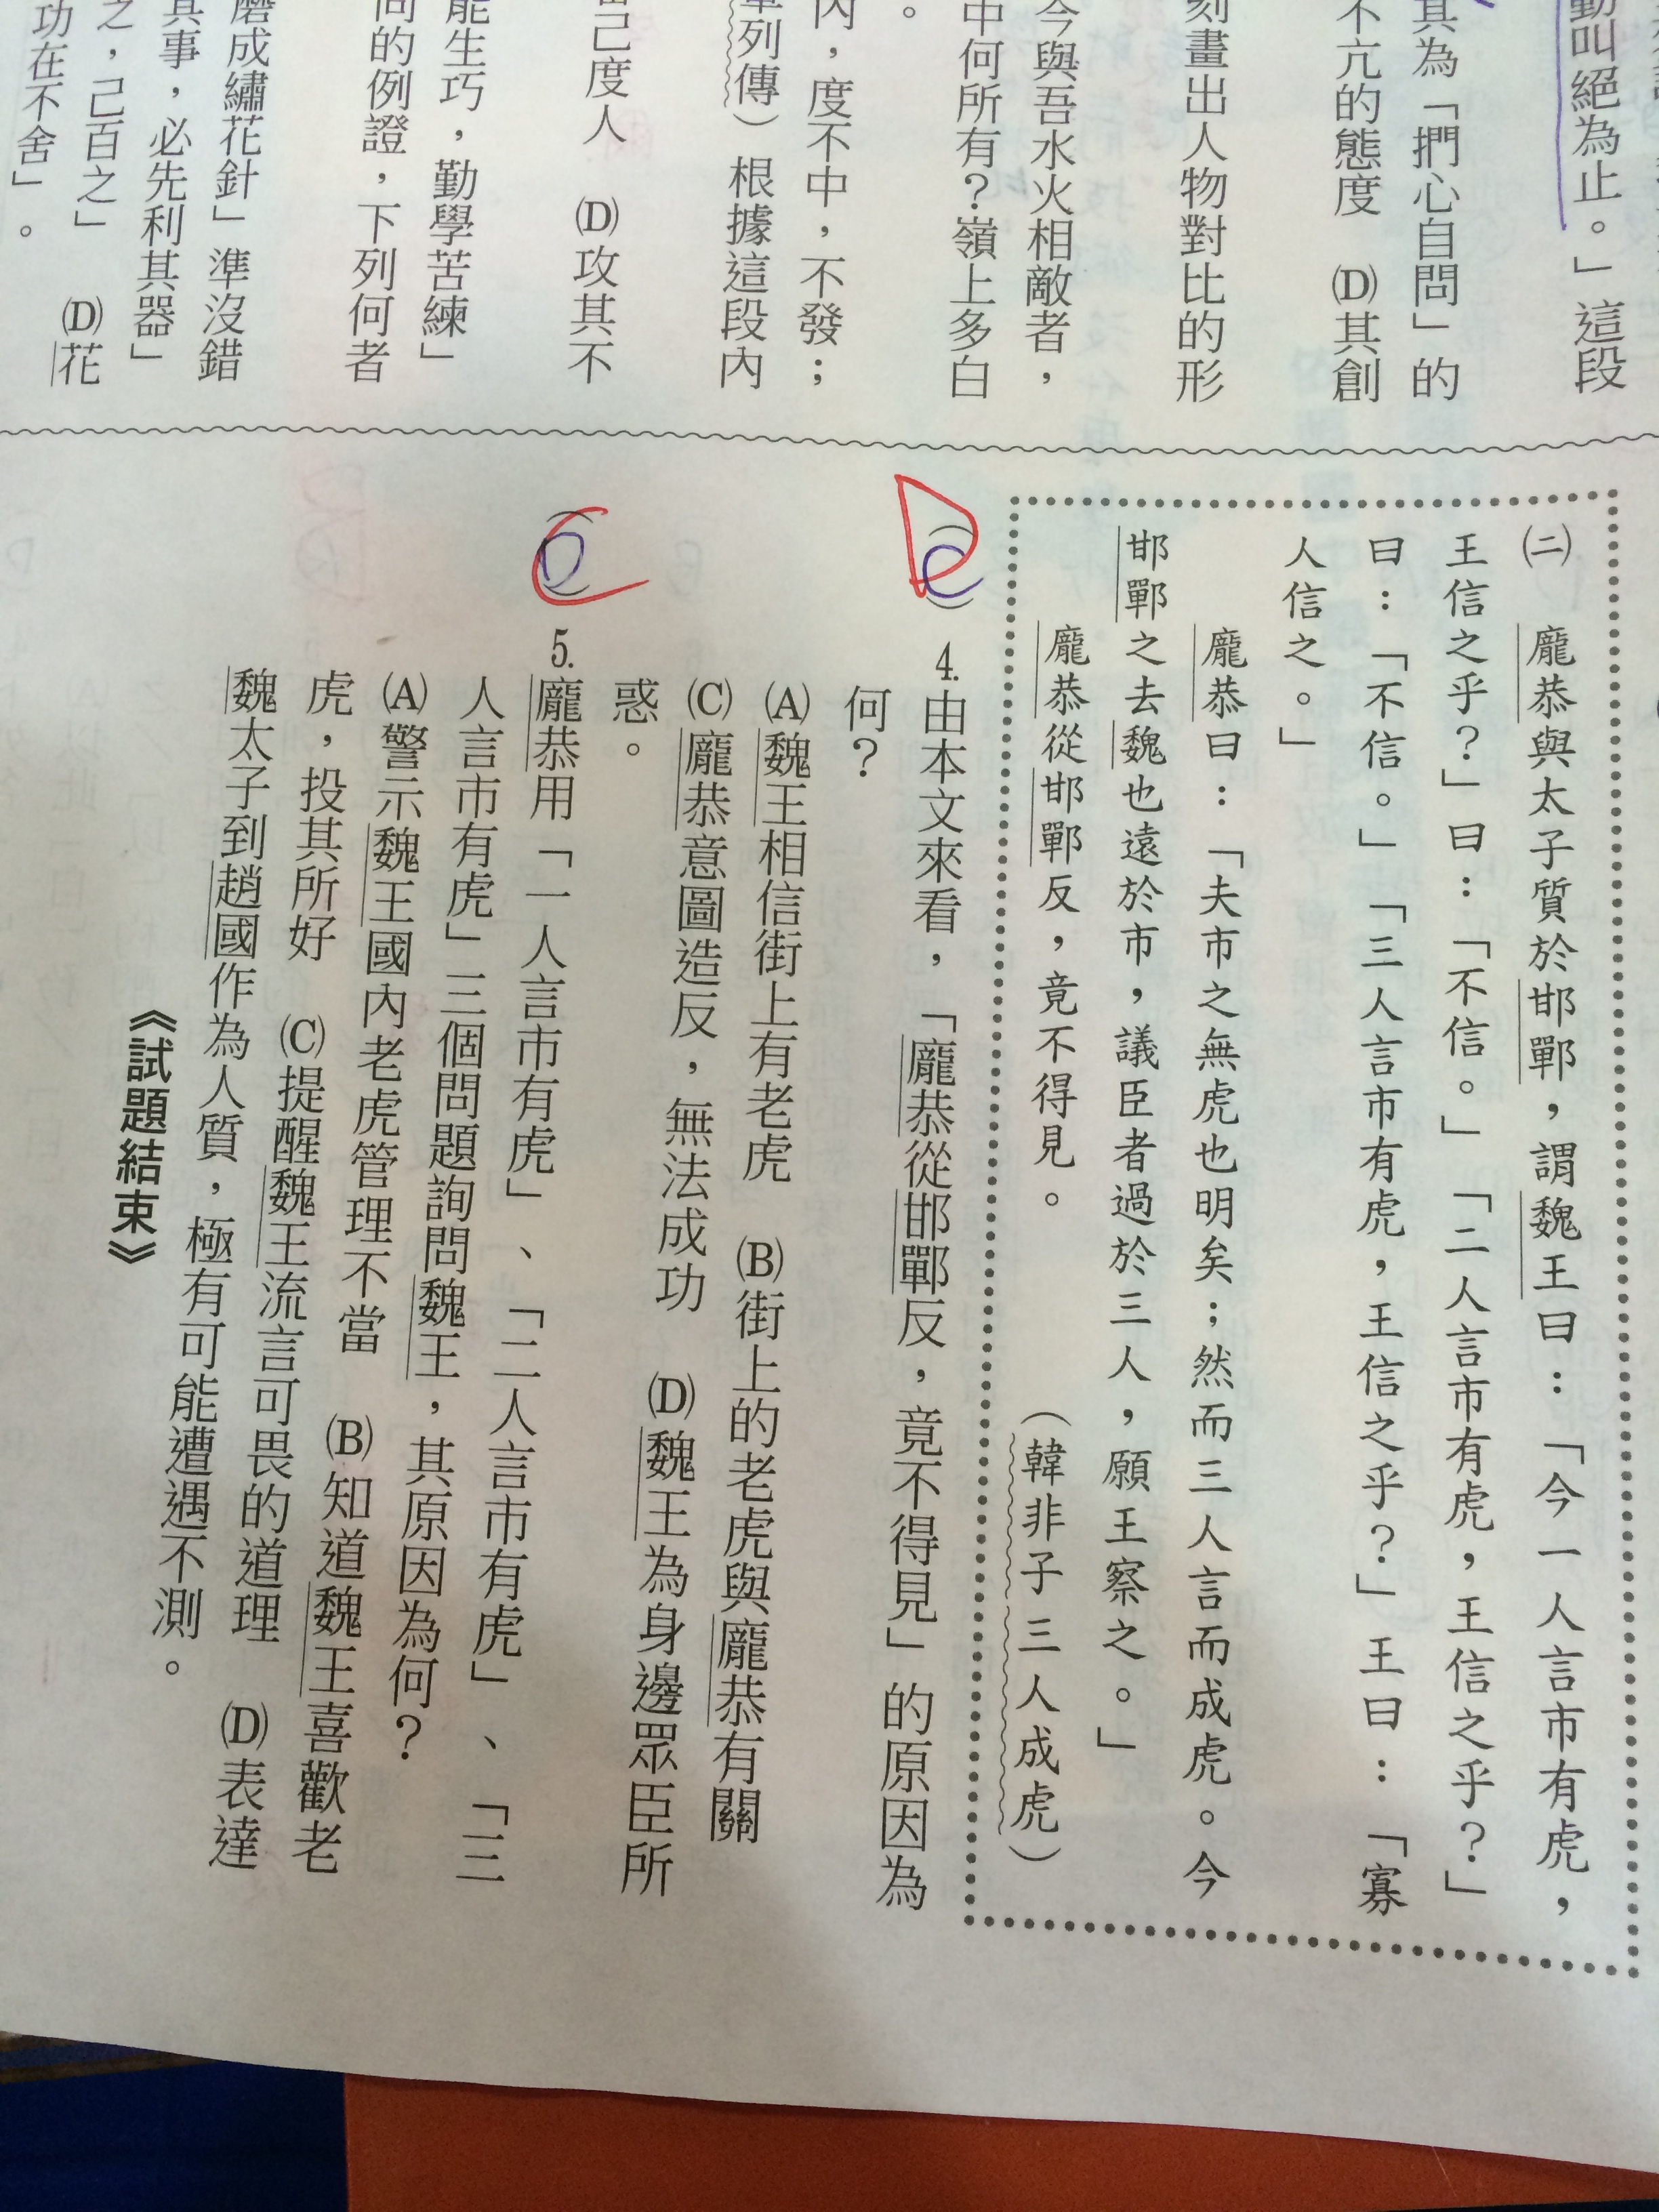 動叫絕為止。」這段
其為「捫心自問」的
不亢的態度　(D)其創
刻畫出人物對比的形
今與吾水火相敵者，
中何所有？嶺上多白
。
內，度不中，不發；
列傳）根據這段內
己度人　(D)攻其不
能生巧，勤學苦練」
同的例證，下列何者
磨成繡花針」準沒錯
其事，必先利其器」
之，己百之」　(D)花
功在不舍」。
㈡　龐恭與太子質於邯鄲，謂魏王曰：「今一人言市有虎，
王信之乎？」曰：「不信。」「二人言市有虎，王信之乎？」
曰：「不信。」「三人言市有虎，王信之乎？」王曰：「寡
人信之。」
龐恭曰：「夫市之無虎也明矣；然而三人言而成虎。今
邯鄲之去魏也遠於市，議臣者過於三人，願王察之。」
龐恭從邯鄲反，竟不得見。　（韓非子三人成虎）
D
C
4.由本文來看，「龐恭從邯鄲反，竟不得見」的原因為
何？
(A)魏王相信街上有老虎　(B)街上的老虎與龐恭有關
(C)龐恭意圖造反，無法成功　(D)魏王為身邊眾臣所
惑。
C
D
5.龐恭用「一人言市有虎」、「二人言市有虎」、「三
人言市有虎」三個問題詢問魏王，其原因為何？
(A)警示魏王國內老虎管理不當　(B)知道魏王喜歡老
虎，投其所好　(C)提醒魏王流言可畏的道理　(D)表達
魏太子到趙國作為人質，極有可能遭遇不測。
《試題結束》